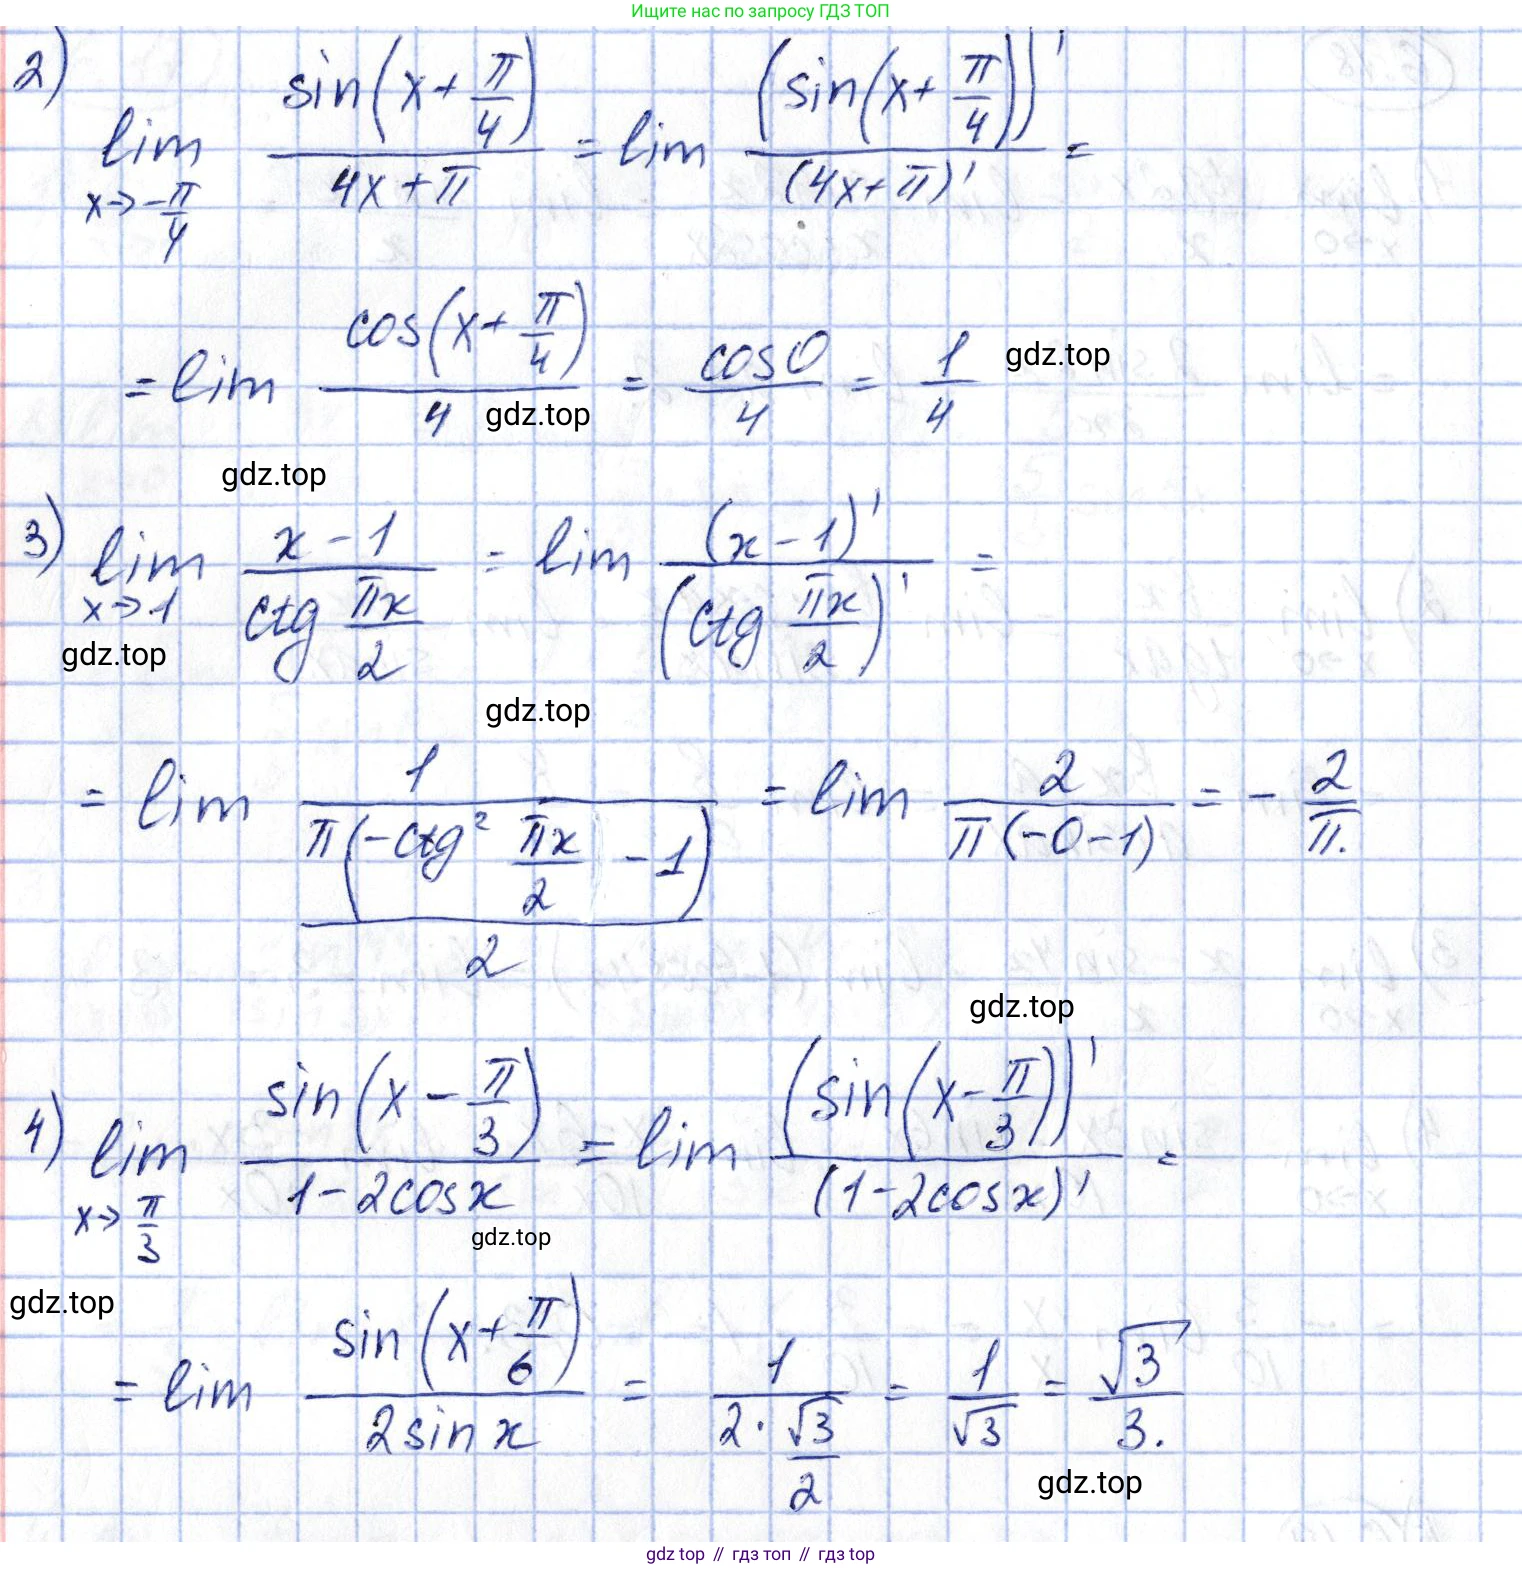 Ищите нас по запросу ГДЗ ТОП
2) lim x→-π/4 sin(x+π/4)/(4x+π) = lim (sin(x+π/4))'/(4x+π)' =
= lim cos(x+π/4)/4 = cos0/4 = 1/4 gdz.top
gdz.top
gdz.top
3) lim x→1 (x-1)/(ctg πx/2) = lim (x-1)'/(ctg πx/2)' =
gdz.top
gdz.top
= lim 1/(π(-ctg² πx/2 - 1)/2) = lim 2/(π(-0-1)) = - 2/π.
gdz.top
4) lim x→π/3 sin(x-π/3)/(1-2cosx) = lim (sin(x-π/3))'/(1-2cosx)' =
gdz.top
gdz.top
= lim sin(x+π/6)/(2sinx) = 1/(2·√3/2) = 1/√3 = √3/3.
gdz.top
gdz top // гдз топ // гдз top